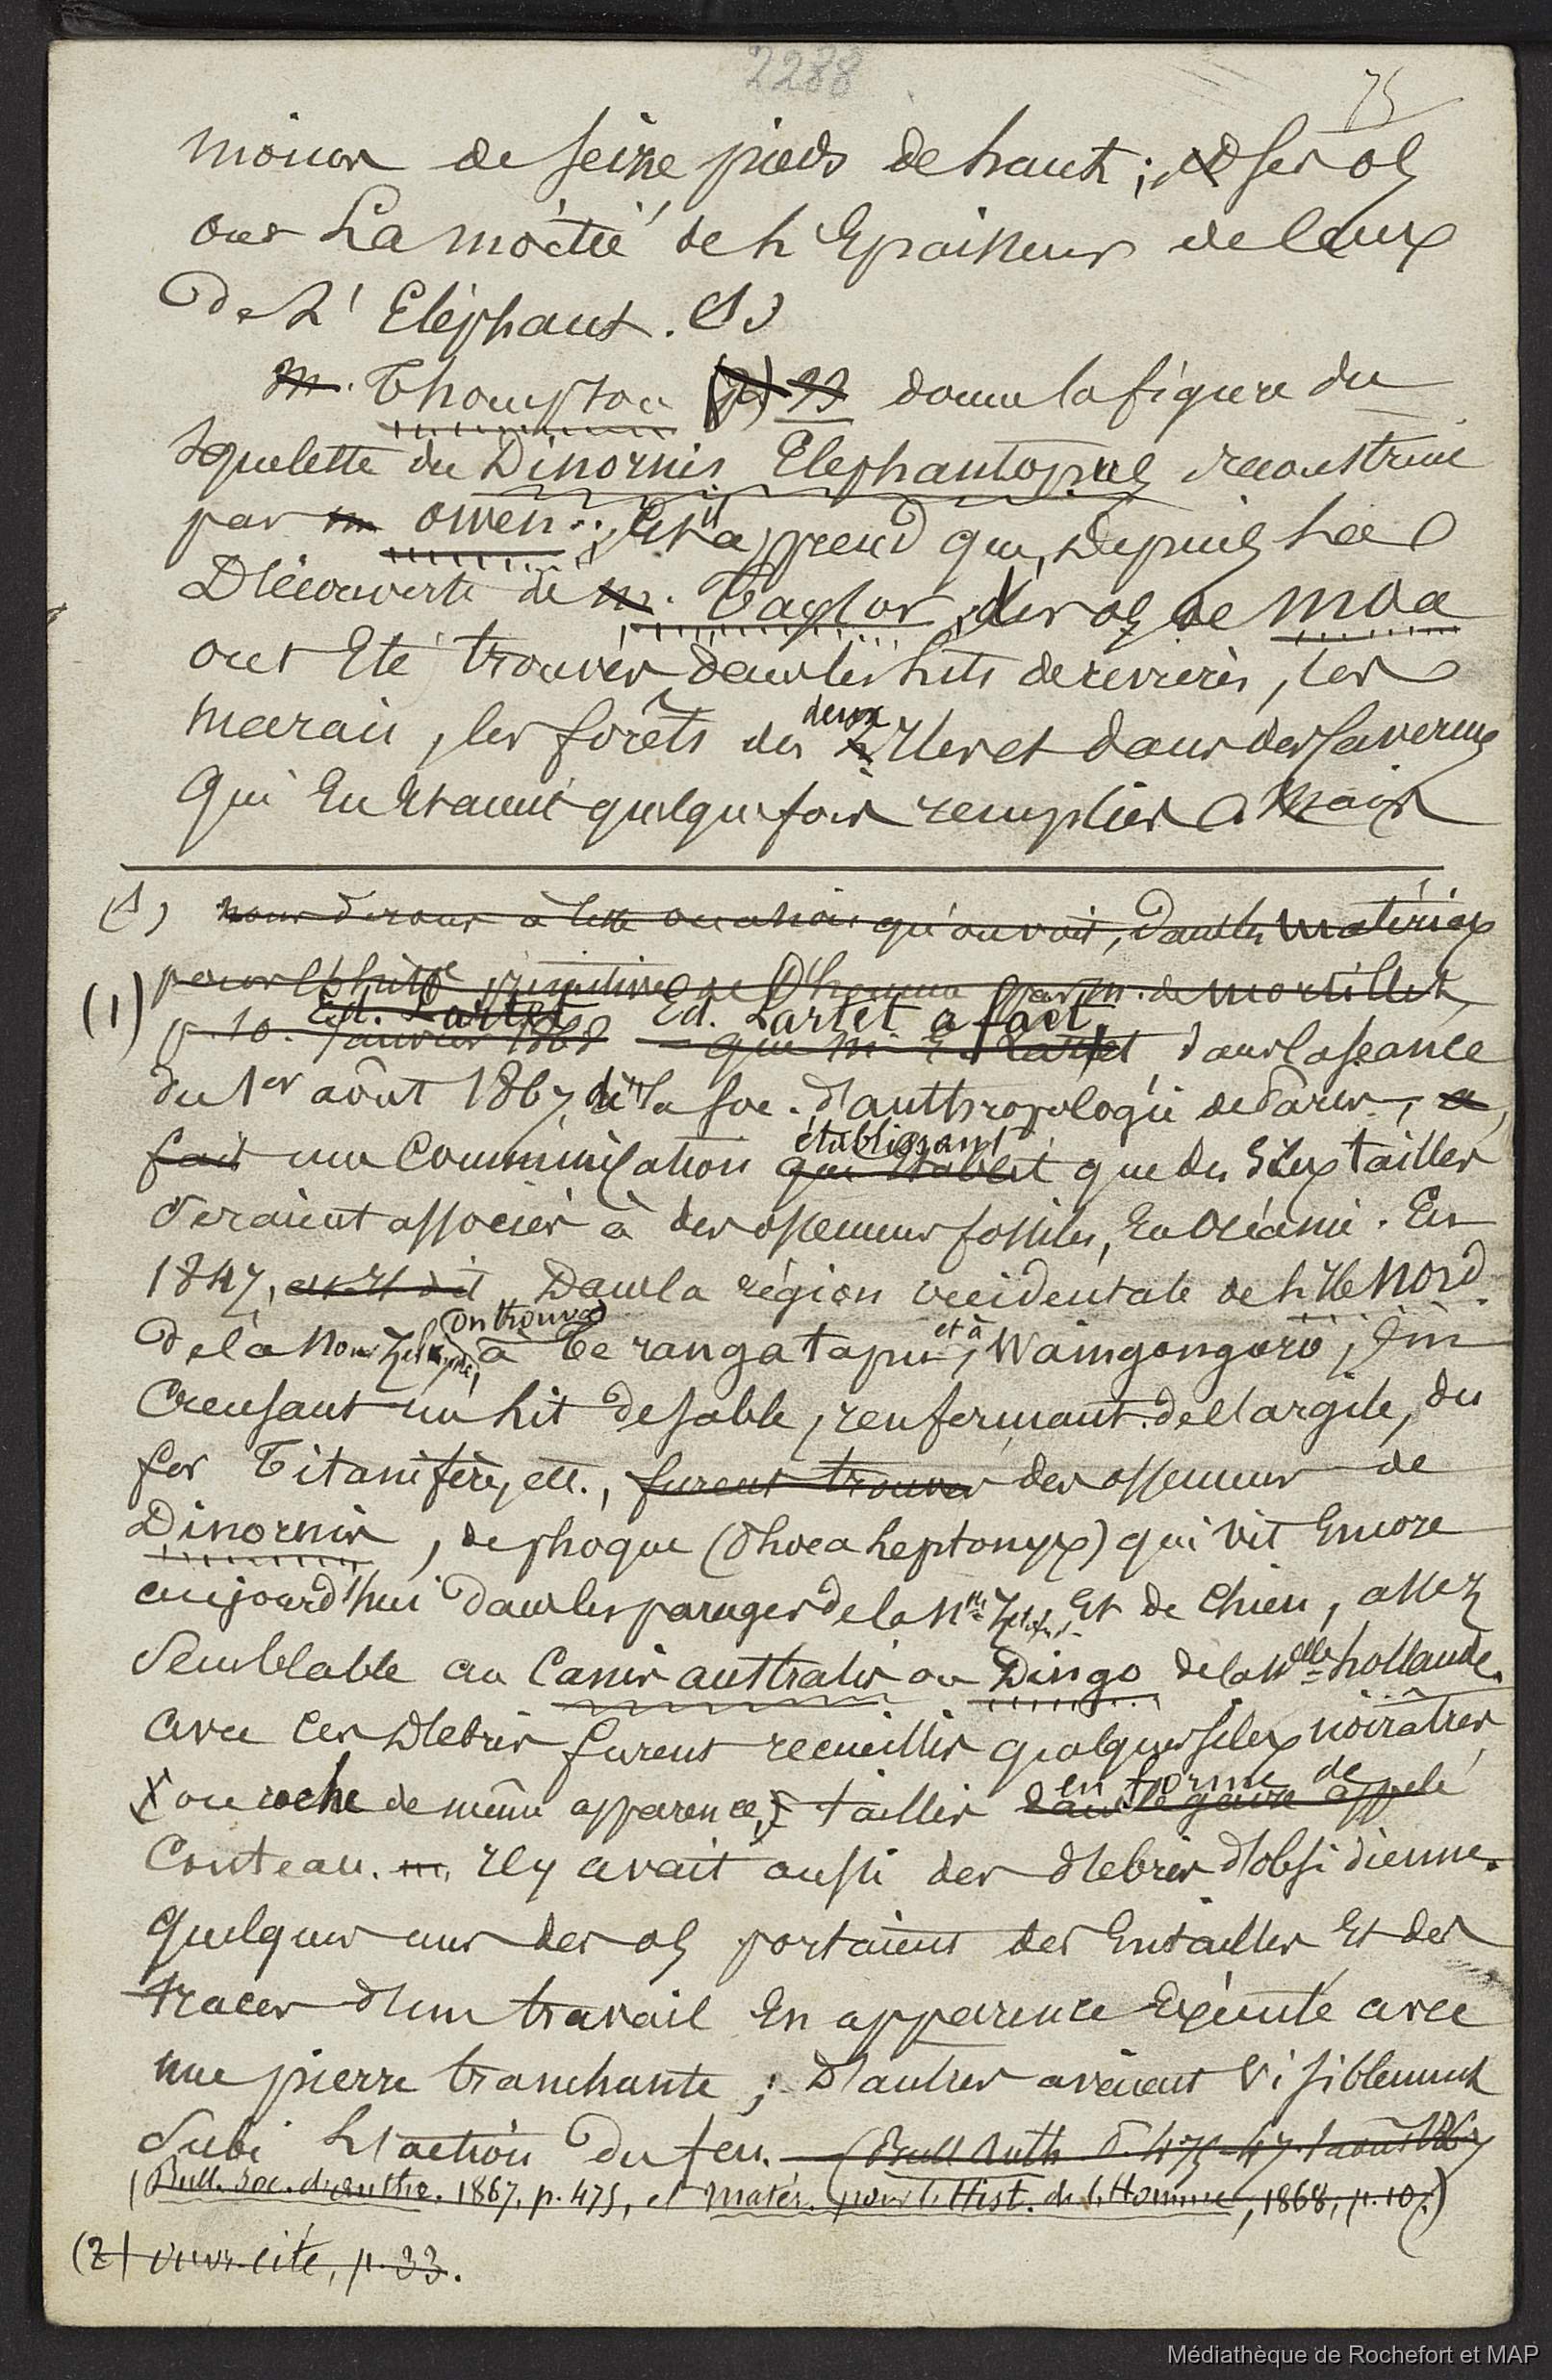 2288
75
moins de seize pieds de haut ; ses os
ont la moitié de l'Epaisseur de ceux
de L'Eléphant. (1)
M. Thompson (2) 33 donne la figure du
squelette du Dinornis Elephantopus reconstruit
par M. Owen ; Il apprend que, Depuis La
Découverte de M. Taylor, des os de moa
ont Eté trouvés dans les lits de rivières, les
marais, les forêts des deux Iles et dans des cavernes
qui En Etaient quelquefois remplies. Mais
(1) nous dirons à cette occasion qu'on voit, dans les matériaux
pour l'histre primitive de l'homme par M. de Mortillet,
(1) p. 10. Janvier 1868 Ed. Lartet Ed. Lartet a fait, que M. E. Lartet dans la séance
du 1er août 1867 de la Soc. d'anthropologie de Paris, a
fait une Communication établissant qui Etablit que des silex taillés
seraient associés à des ossemens fossiles, En Océanie. En
1847, est-il dit Dans la région occidentale de l'Ile Nord
de la Nouv Zélande, on trouva à Te rangatapu et à Waingongoro, En
Creusant un Lit de sable, renfermant de l'argile, du
fer Titanifère, etc., furent trouvés des ossemens de
Dinornis, de phoque (Phoca Leptonyx) qui vit Encore
aujourd'hui dans les parages de la Nlle Zélande Et de Chien, assez
semblable au Canis australis ou Dingo de la Nlle hollande.
avec ces Débris furent recueillis quelques silex noirâtres
ou roche de même apparence, taillés en forme de dans le genre appelé
Couteau. Il y avait aussi des débris d'obsidienne.
Quelques uns des os portaient des Entailles Et des
traces d'un travail En apparence Exécuté avec
une pierre tranchante ; D'autres avaient Visiblement
subi L'action du feu. (Bull Anth P. 475-47. 1 août 1867
(Bull. Soc. d'anthr. 1867, p. 475, et Matér. pour l'Hist. de l'Homme, 1868, p. 10.)
(2) ouvr. cité, p. 33.
Médiathèque de Rochefort et MAP